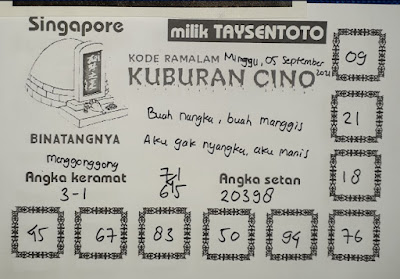 Singapore
milik TAYSENTOTO
KODE RAMALAM Minggu, 05 September 2021
KUBURAN CINO
09
Buah nangka, buah manggis
21
BINATANGNYA
Aku gak nyangka, aku manis
Menggonggong
Angka keramat
3-1
71
645
Angka setan
20398
18
45 67 83 50 94 76